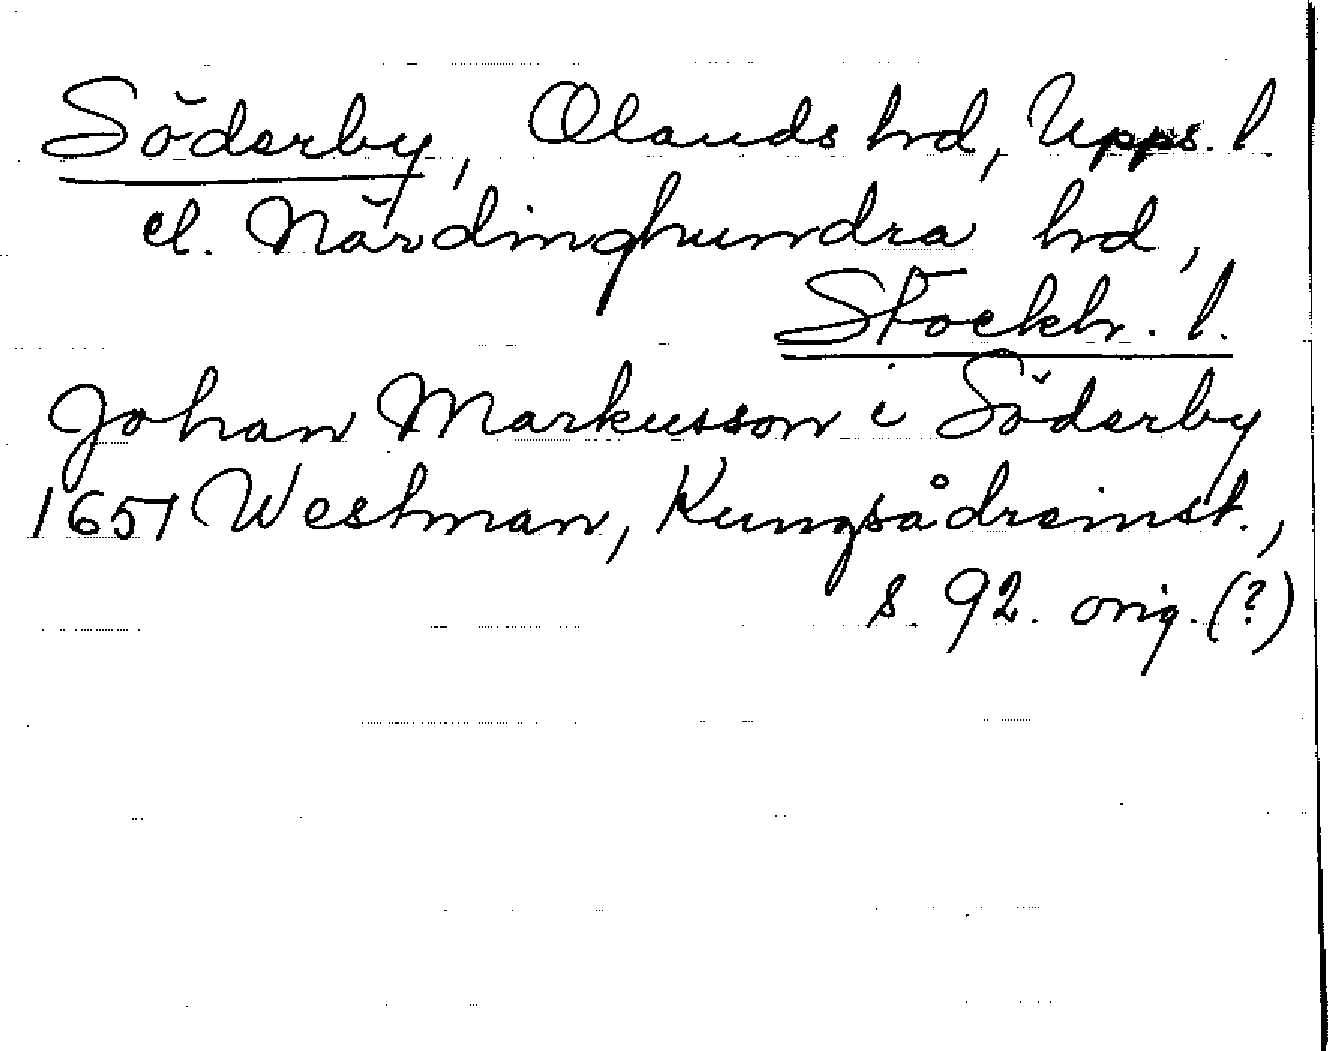 Söderby, Olands hd, Upps. l
el. Närdinghundra hd,
Stockh. l.
Johan Markusson i Söderby
1651 Westman, Kungsådreinst.,
s. 92. orig. (?)